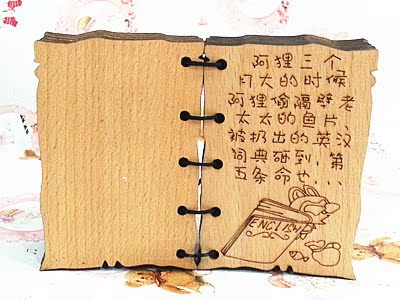 阿狸三个
月大的时候
阿狸偷隔壁老
太太的鱼片、
被扔出的英汉
词典砸到，第
五条命也...
ENGLISH